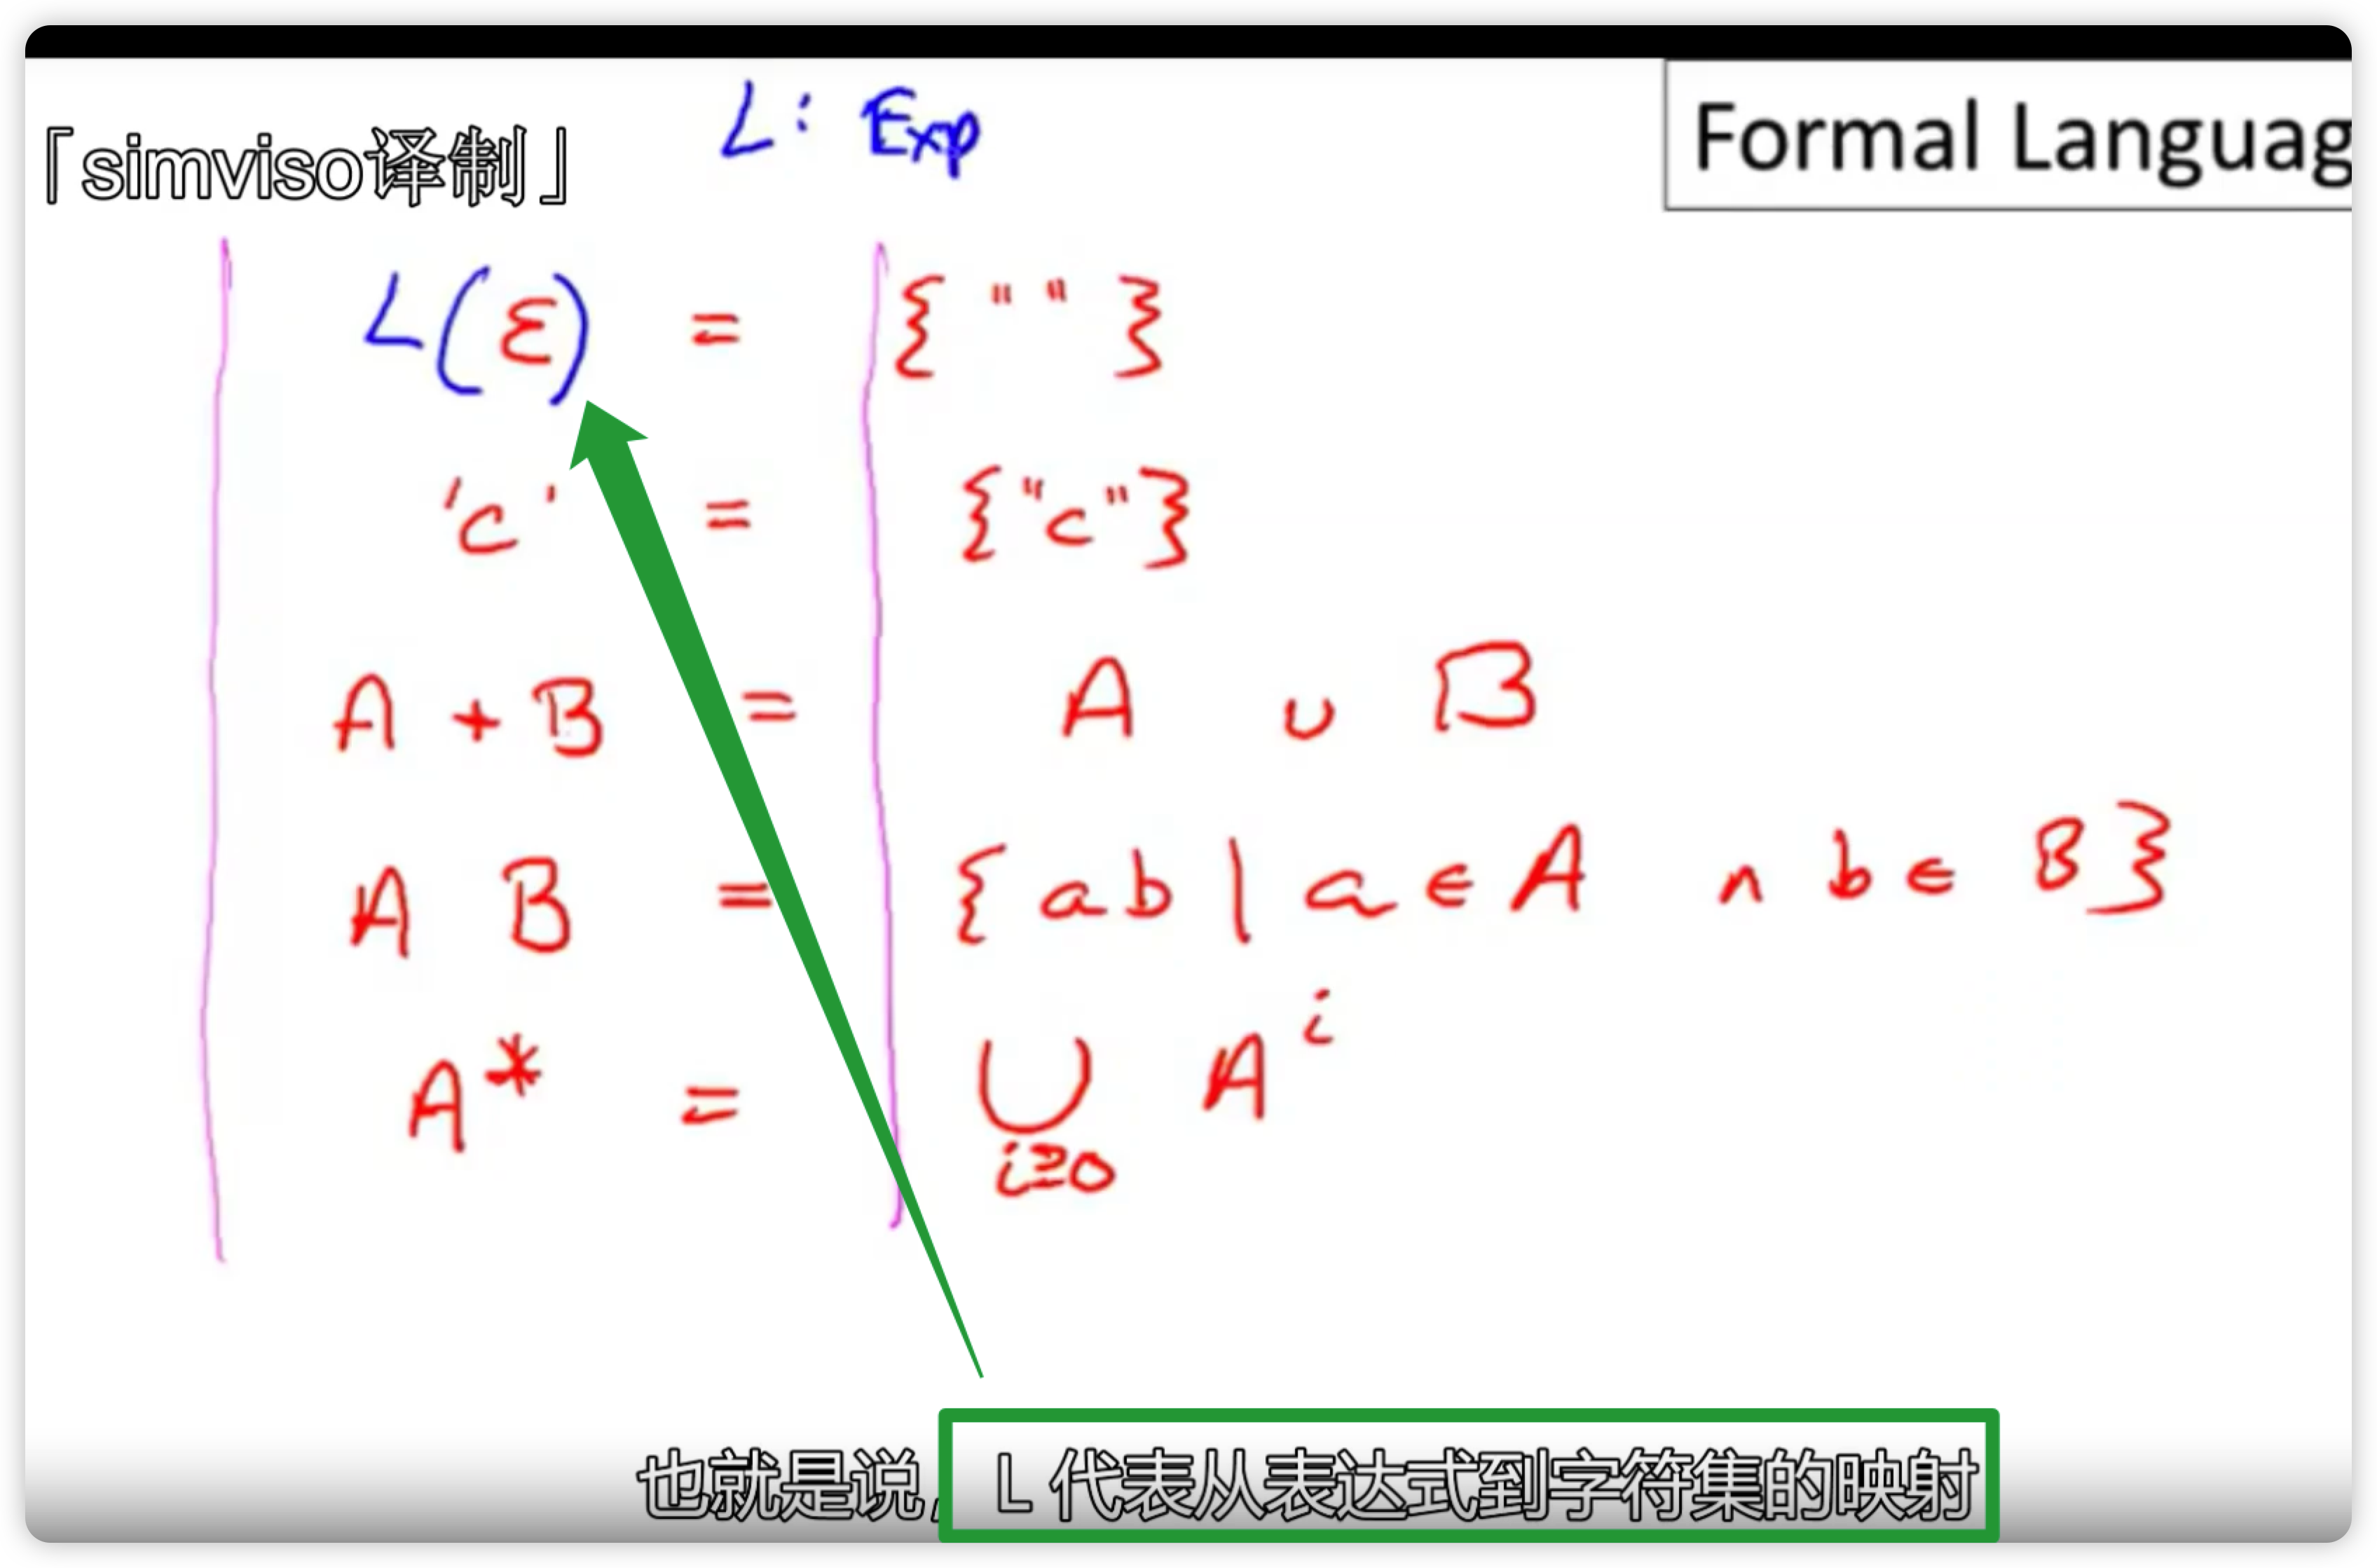 L: Exp
「simviso译制」
Formal Languag
L(ε) = {" "}
'c' = {"c"}
A + B = A ∪ B
A B = {ab | a ∈ A ∧ b ∈ B}
A* = ⋃ Aⁱ
i≥0
也就是说, L 代表从表达式到字符集的映射